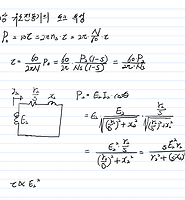 유도전동기의 토크 특성
P₀ = ωτ = 2πnτ = 2π N/60 τ
τ = 60/2πN P₀ = 60/2π P₂(1-s)/Ns(1-s) = 60P₂/2πNs
P₂ = E₂I₂ cosθ
r₂/s x₂
E₂
= E₂ E₂/√((r₂/s)²+x₂²) r₂/s/√((r₂/s)²+x₂²)
= E₂² r₂/s/(r₂/s)²+x₂² = sE₂²r₂/r₂²+(sx₂)²
τ ∝ E₂²